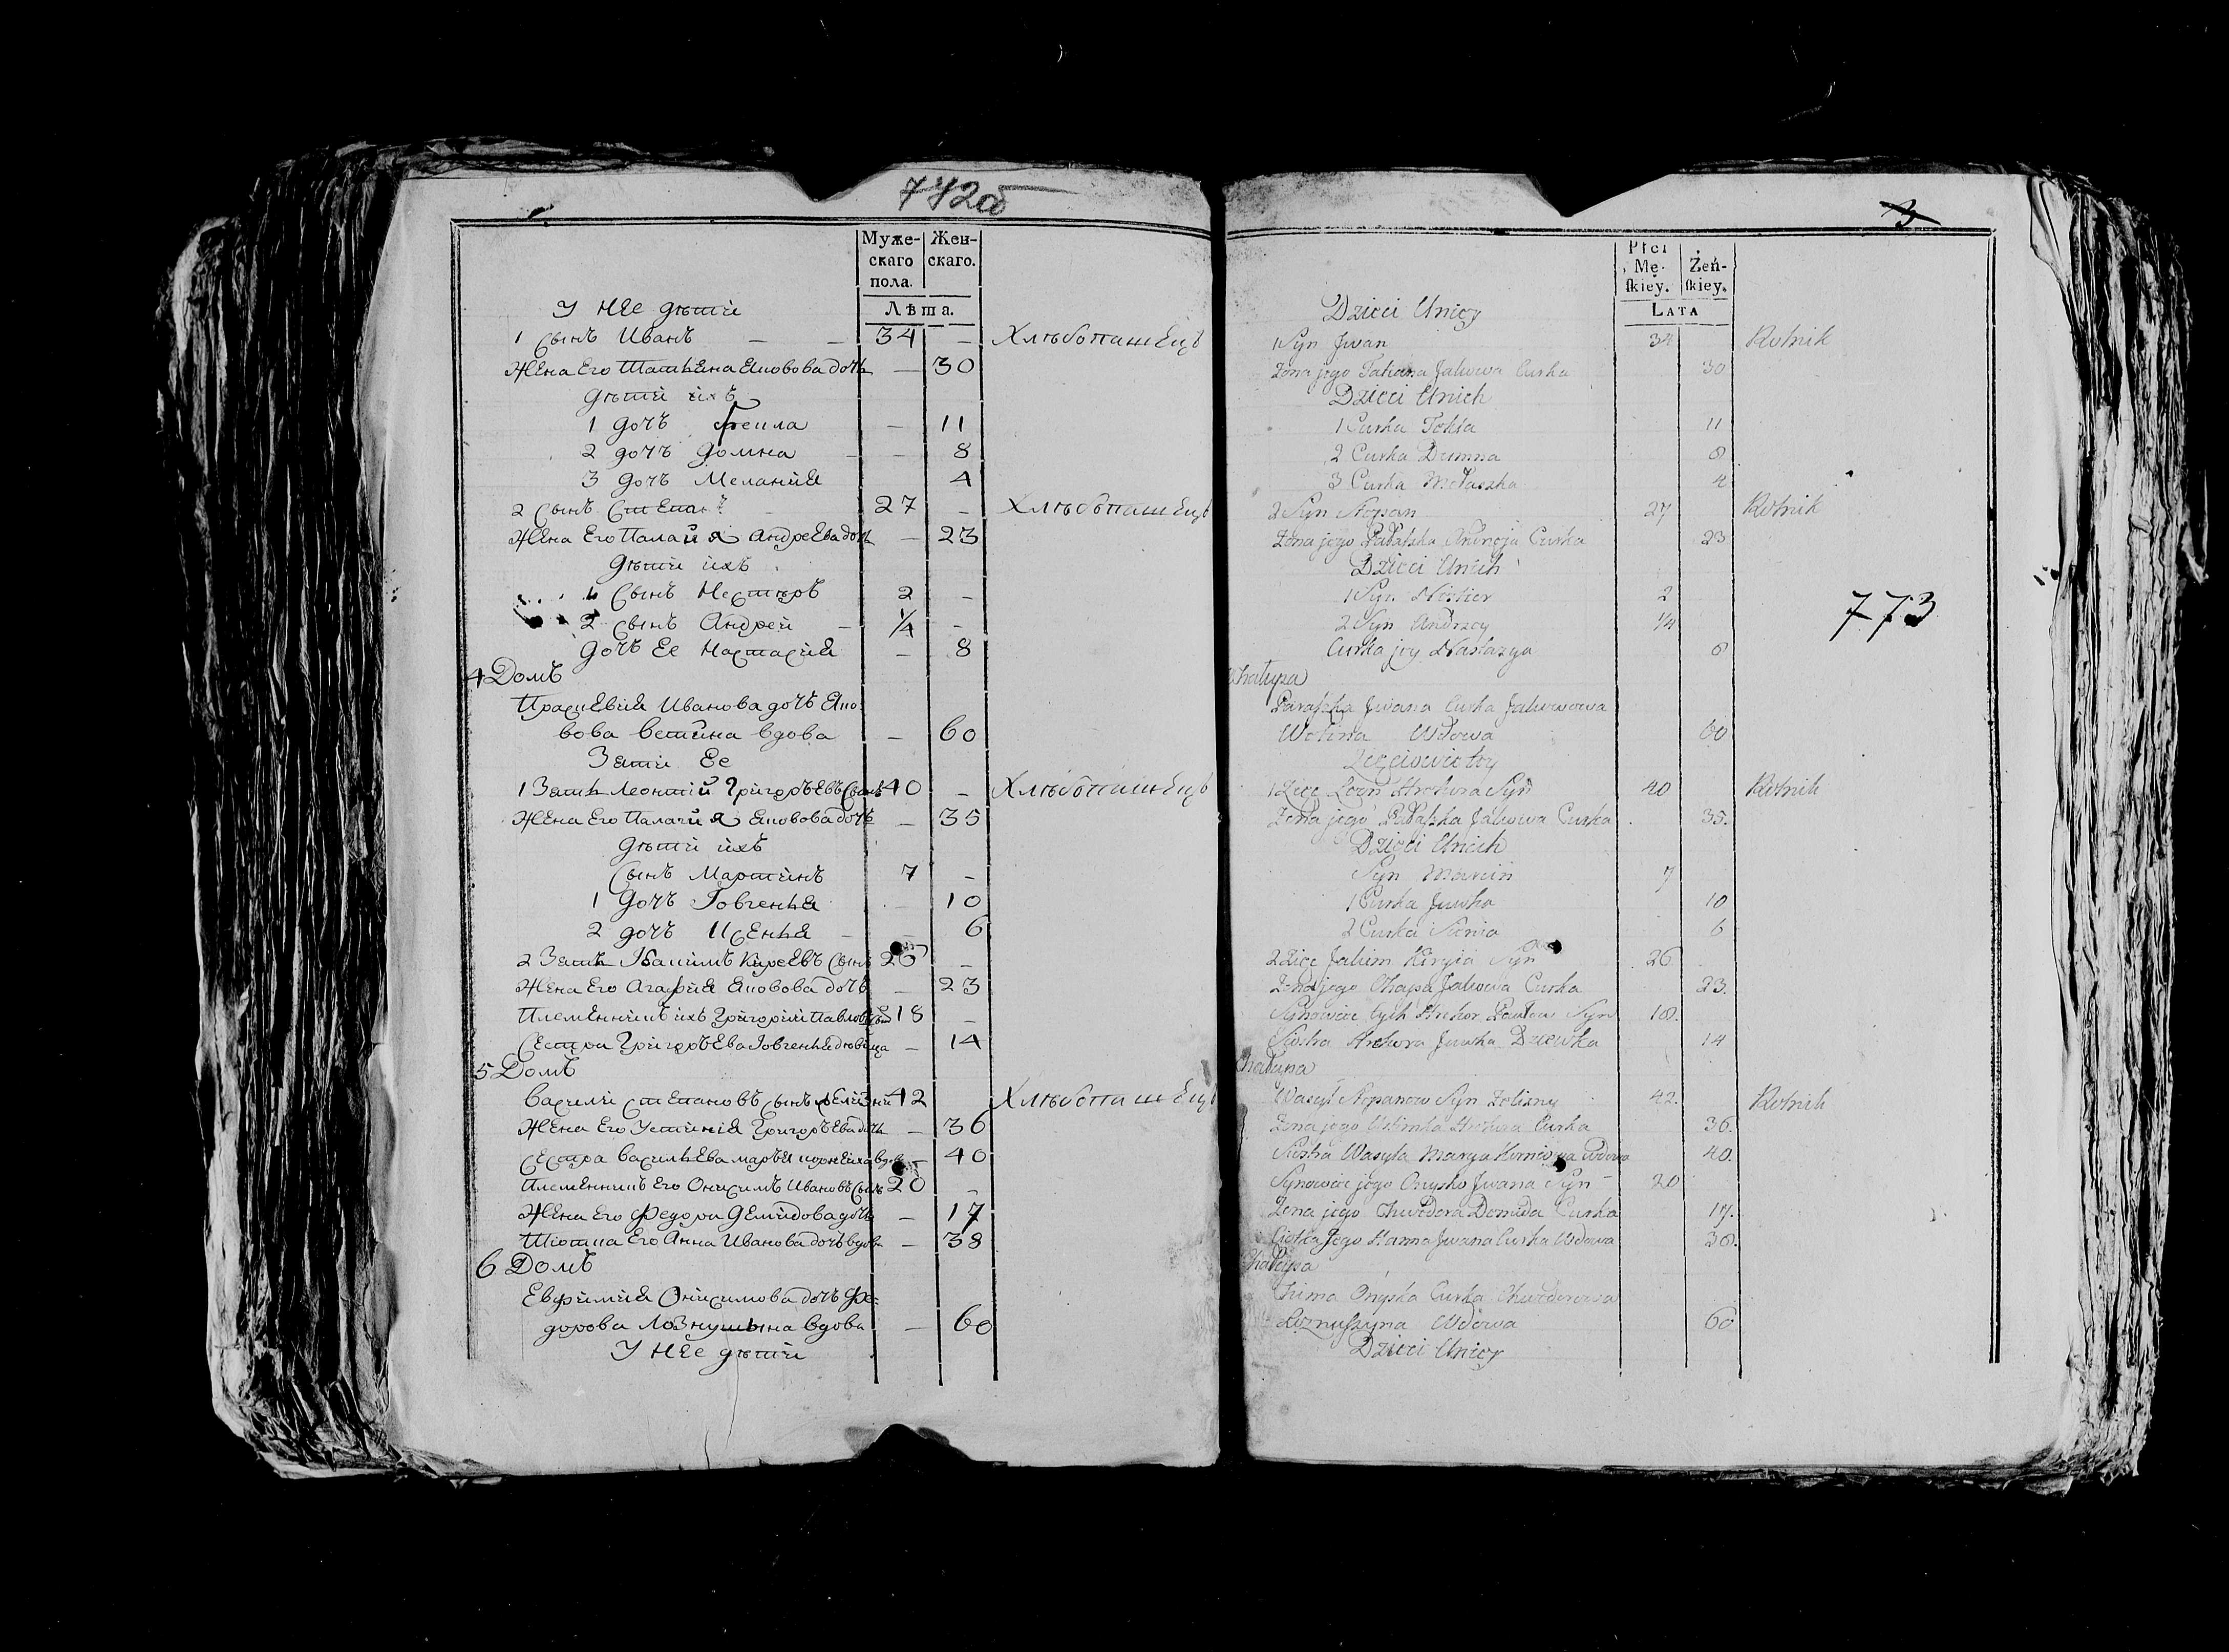 772об
Муже- Жен-
скаго скаго.
пола.
Лѣта.
У нее дѣти
1 Сынъ Иванъ — — 34 — Хлѣбопашецъ
Жена Его Татьяна Яковова дочь — 30
Дѣти ихъ
1 дочъ Фекла — 11
2 дочъ Домна — — 8
3 дочъ Мелания 4
2 Сынъ Степанъ 27 — Хлѣбопашецъ
Жена Его Палагия Андреева дочь — 23
Дѣти ихъ
1 Сынъ Нестеръ 2 —
2 Сынъ Андрей — 1/4 —
дочъ Ее Настасия — 8
4 Домъ
Праскевия Иванова дочъ Яко
вова вдова — 60
Зети Ее
1 Зеть Леонтий Григорьевъ Сынъ 40 — Хлѣбопашецъ
Жена Его Палагия Яковова дочъ — 35
дѣти ихъ
Сынъ Мартинъ 7 —
1 Дочъ Іовгенья — 10
2 дочъ Ксенья — 6
2 Зеть Іоакимъ Киреевъ Сынъ 26 —
Жена Его Агафия Яковова дочъ — 23
Племенникъ ихъ Григорий Павловъ Сынъ 18 —
Сестра Григорьева Іовгенья девица — 14
5 Домъ
Василий Степановъ Сынъ 42 Хлѣбопашецъ
Жена Его Устиния Григорьева дочь — 36
Сестра Васильева Марья вдова — 40
Племенникъ Его Онисимъ Ивановъ Сынъ 20 —
Жена Его Федора Демидова дочь — 17
Тютка Его Анна Иванова дочъ вдова — 38
6 Домъ
Евфимия Онисимова дочъ Фе-
дорова Лознушына вдова — 60
У нее дѣти
3
Płci
Mę- Żeń-
skiey. skiey.
Lata
Dzieci Uniey
1 Syn Jwan 34 Rolnik
Żona jego Tatiana Jakowa Curka 30
Dzieci Unich
1 Curka Tekla 11
2 Curka Dumna 8
3 Curka Melaszka 4
2 Syn Stepan 27 Rolnik
Żona jego Pałaszka Curka 23
Dzieci Unich
1 Syn Nestier 2
2 Syn Andrzey 1/4
Curka jey Nastazya 8
773
Chałupa
Paraszka Jwana Curka Jakowowa
Wdowa 60
1 Zięć Leon Hrehora Syn 40 Rolnik
Żona jego Pałaszka Jakowa Curka 35.
Dzieci Unich
Syn Marcin 7
1 Curka Juwka 10
2 Curka 6
2 Zięć Jakim Kiryia Syn 26
Żona jego Ohapa Jakowa Curka 23.
Synowiec tych Hrehor Pawłow Syn 18.
Siostra Hrehora Juwka Dziewka 14
Chałupa
Wasyl Stepanow Syn 42. Rolnik
Żona jego Ustinka Hrehora Curka 36.
Siostra Wasyla Marya Wdowa 40.
Synowiec jego Onysko Jwana Syn — 20
Żona jego Chwedora Demida Curka 17.
Ciotka Jego Hanna Jwana Curka Wdowa 38.
Chałupa
Chima Onyska Curka Chwedorowa
Łoznuszyna Wdowa 60
Dzieci Uniey